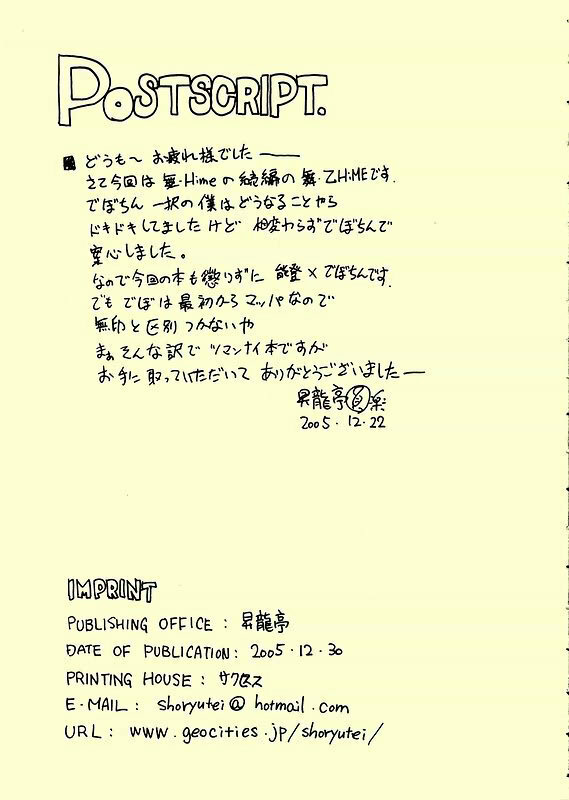 POSTSCRIPT.
どうも〜 お疲れ様でした ――
さて今回は 舞-Himeの続編の 舞-乙HiMEです.
でぼちん 一択の僕はどうなることやら
ドキドキしてましたけど 相変わらずでぼちんで
安心しました。
なので今回の本も懲りずに 能登×でぼちんです.
でも でぼは最初からマッパなので
無印と区別つかないや
まぁそんな訳で ツマンナイ本ですが
お手に取っていただいて ありがとうございました―
昇龍亭 楽
2005・12・22
IMPRINT
PUBLISHING OFFICE : 昇龍亭
DATE OF PUBLICATION: 2005・12・30
PRINTING HOUSE : サクセス
E-MAIL : shoryutei@hotmail.com
URL : www.geocities.jp/shoryutei/